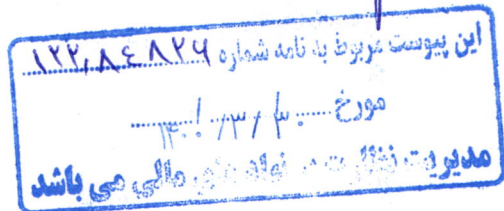 این پیوست مربوط به نامه شماره ۱۲۲,۸۴۸۲۶
مورخ ۱۴۰۰/۳/۳۰
مدیریت نظارت بر نهادهای مالی می باشد